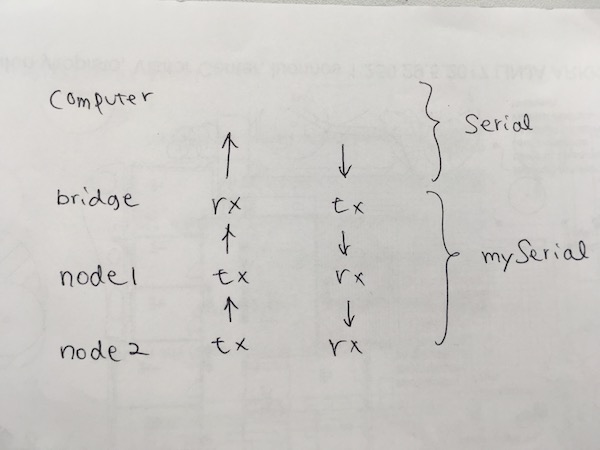 Computer
Serial
bridge rx tx
mySerial
node1 tx rx
node2 tx rx